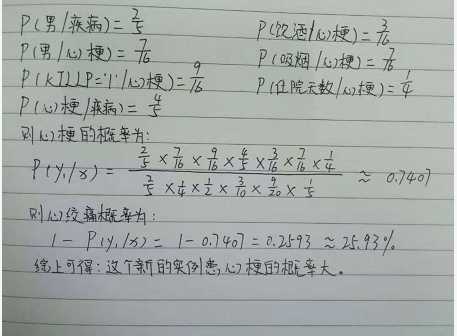 P(男/疾病)=2/5 P(饮酒/心梗)=3/16
P(男/心梗)=7/16 P(吸烟/心梗)=7/16
P(KILLP='1'/心梗)=9/16 P(住院天数/心梗)=1/4
P(心梗/疾病)=4/5
则心梗的概率为:
P(y₁/x)= (2/5×7/16×9/16×4/5×3/16×7/16×1/4)/(2/5×1/4×1/2×3/10×9/20×1/5) ≈ 0.7407
则心绞痛概率为:
1-P(y₁/x)=1-0.7407=0.2593≈25.93%
综上可得:这个新的实例患心梗的概率大。